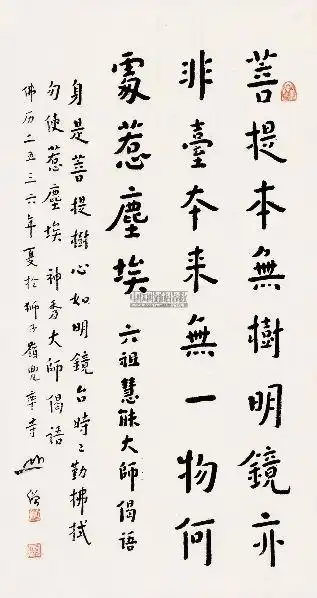 菩提本無樹明鏡亦
非臺本来無一物何
處惹塵埃 六祖慧能大師偈語
身是菩提樹心如明鏡台時〻勤拂拭
勿使惹塵埃 神秀大師偈語
佛历二五三六年夏於狮子嶺兜率寺